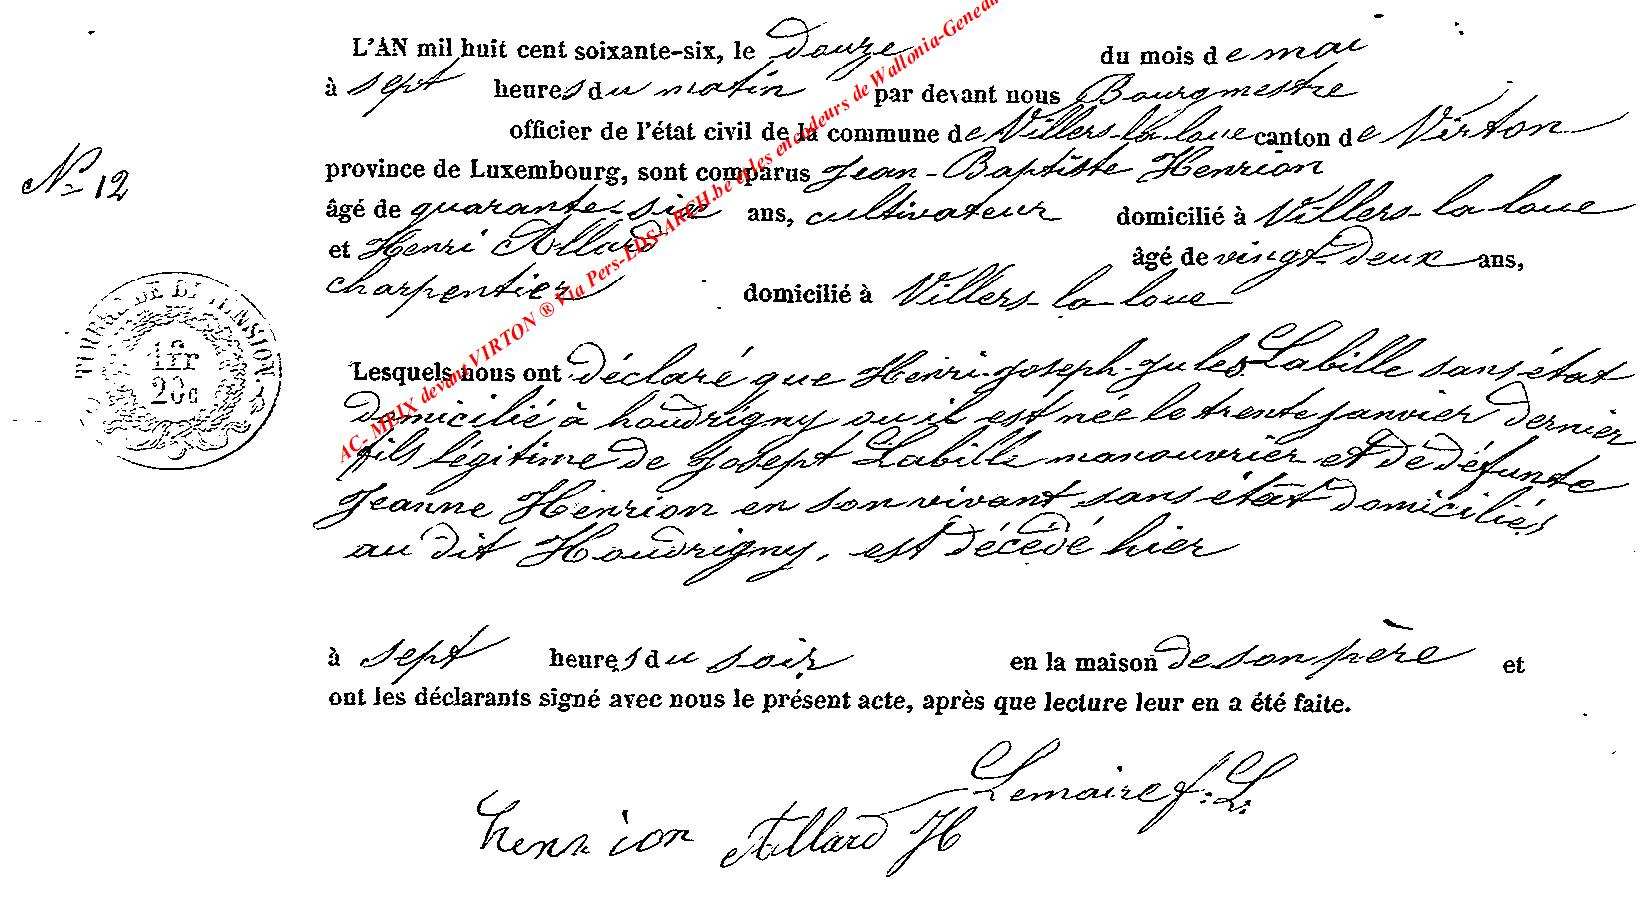 L'AN mil huit cent soixante-six, le douze du mois de mai
à sept heures du matin par devant nous Bourgmestre
officier de l'état civil de la commune de Villers-la-loue canton de Virton
N° 12
province de Luxembourg, sont comparus Jean-Baptiste Henrion
âgé de quarante-six ans, cultivateur domicilié à Villers-la loue
et Henri Allard âgé de vingt-deux ans,
charpentier domicilié à Villers-la-loue
TIMBRE DE DIMENSION
1fr
20c
Lesquels nous ont déclaré que Henri-Joseph-Jules Labille sans état
domicilié à houdrigny ou il est née le trente janvier dernier
fils légitime de Josept Labille manouvrier et de défunte
Jeanne Henrion en son vivant sans état domiciliés
au dit Houdrigny, est décédé hier
à sept heures du soir en la maison de son père et
ont les déclarants signé avec nous le présent acte, après que lecture leur en a été faite.
Lemaire f: L.
henrion Allard H
AC- MEIX devant VIRTON ® Via Pers-EDS-ARCH.be et les encodeurs de Wallonia-Genea